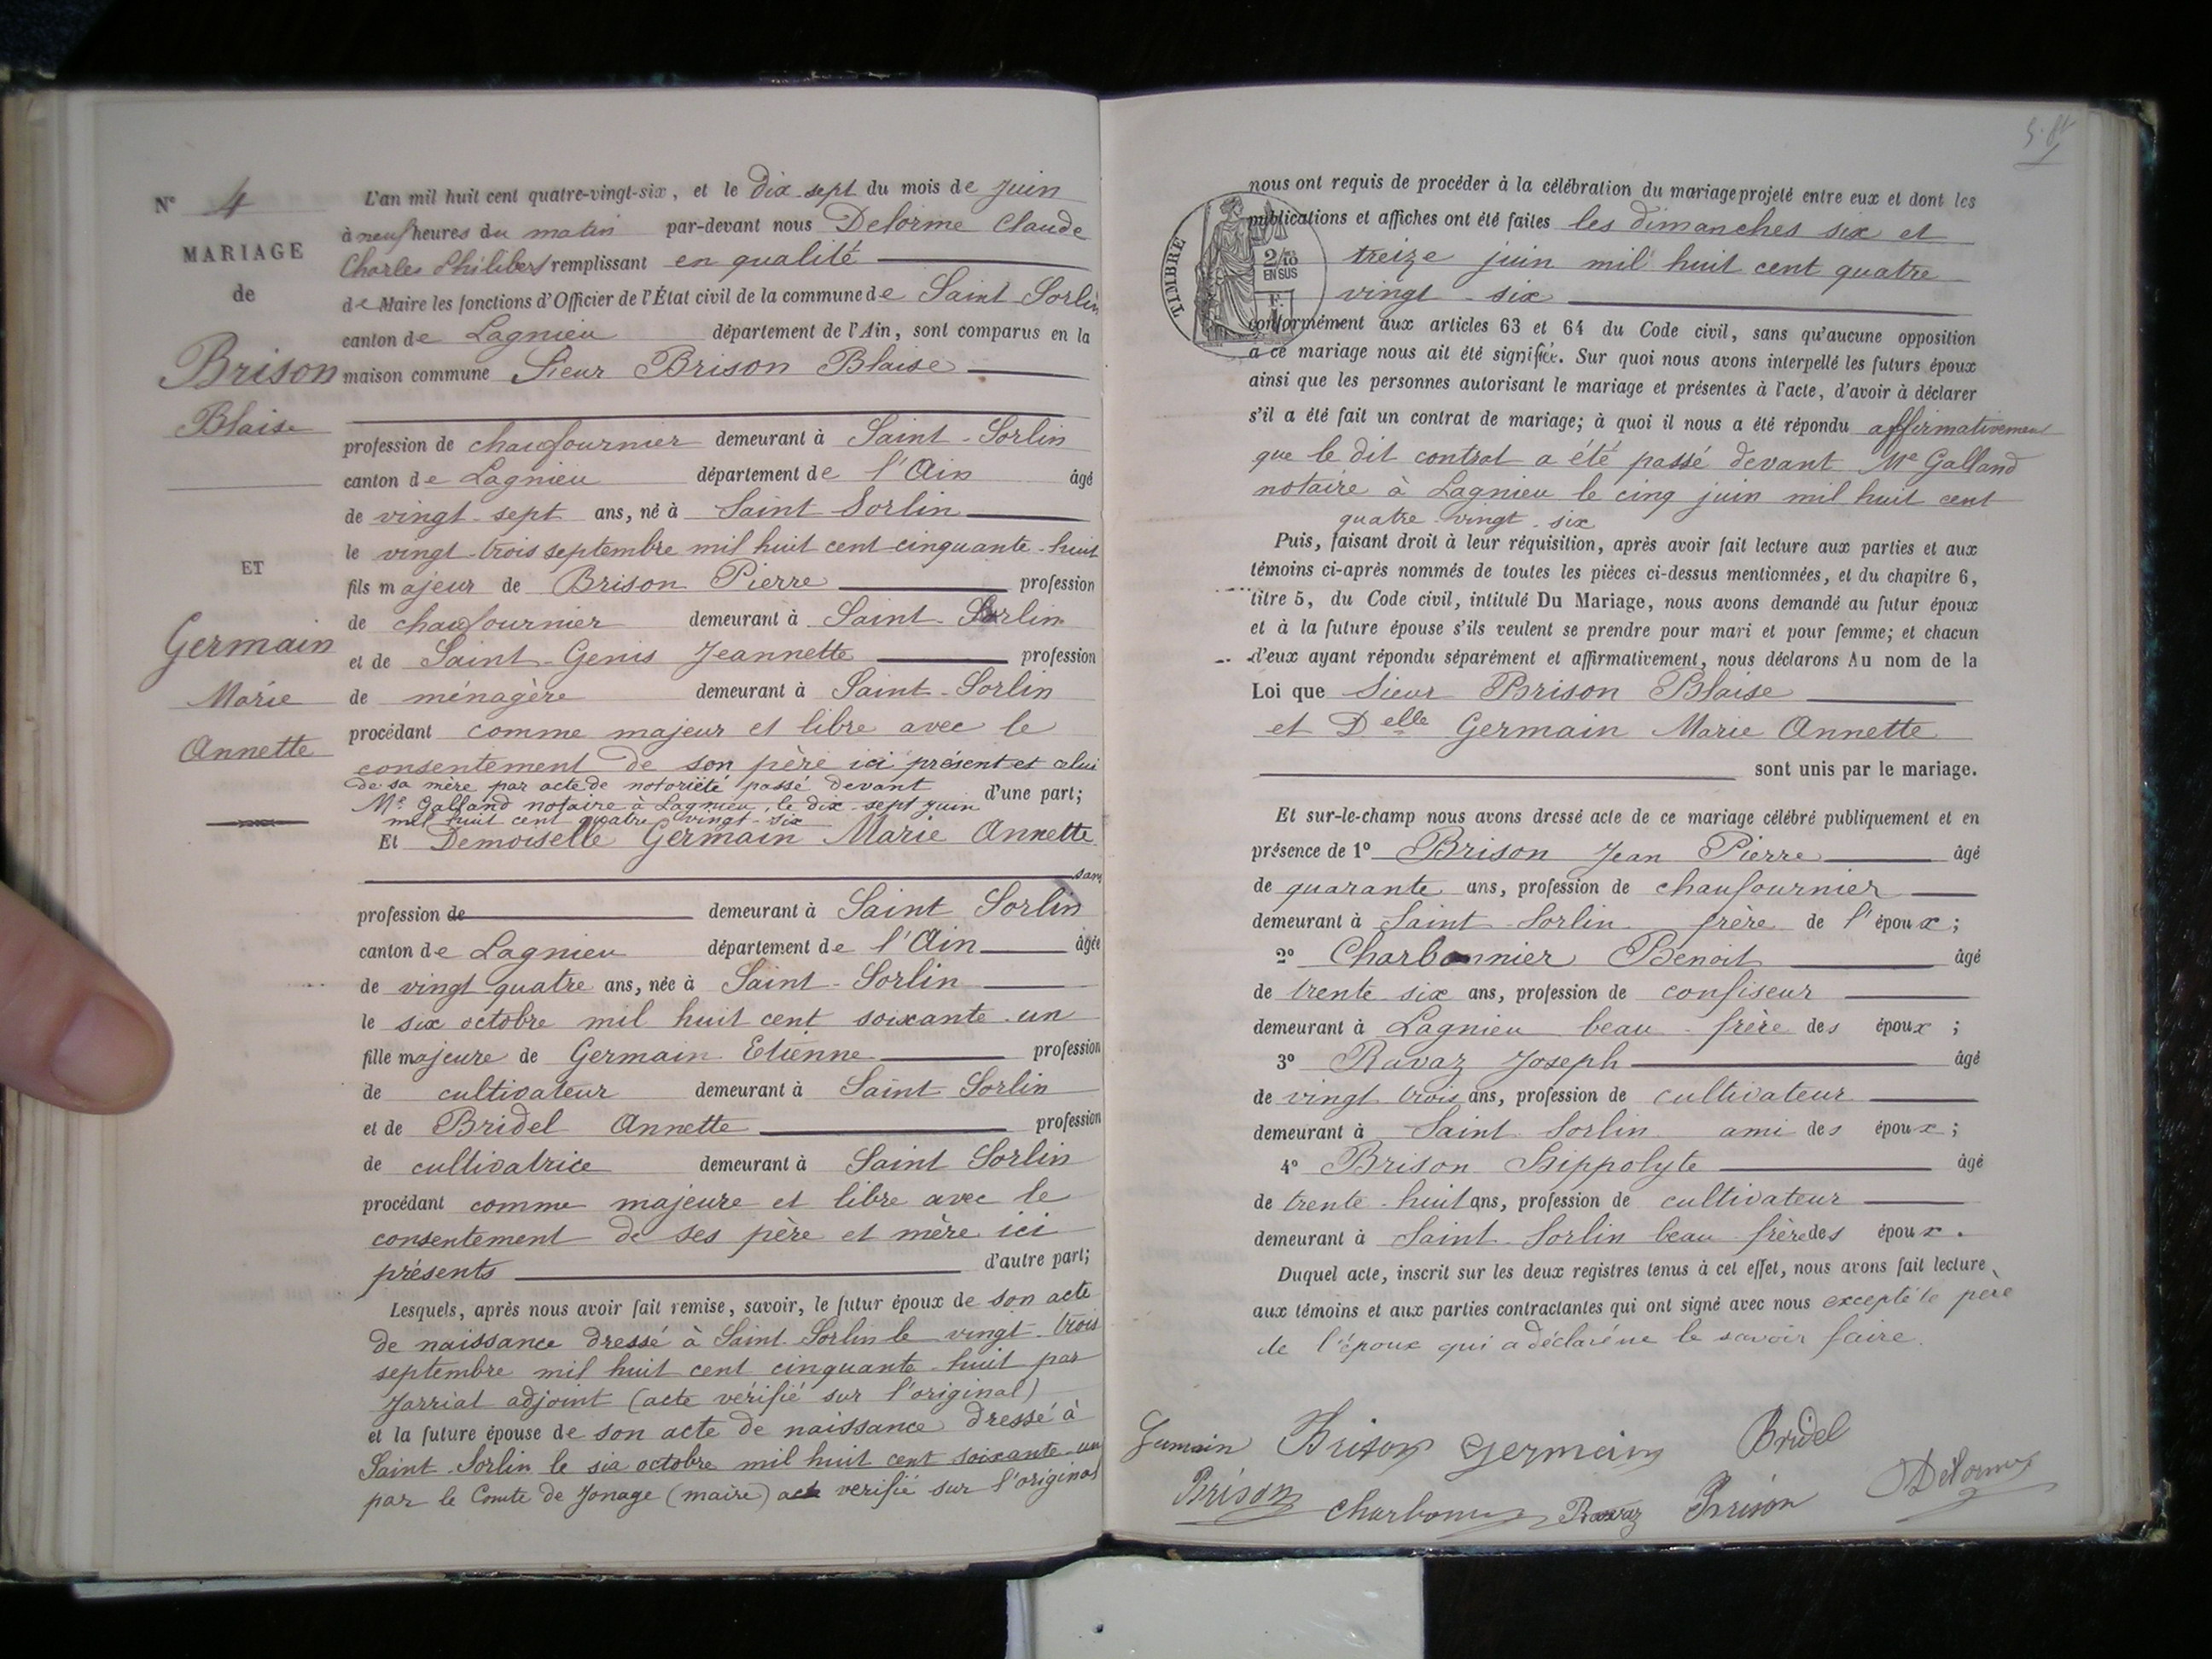 N° 4
MARIAGE
de
Brison
Blaise
ET
Germain
Marie
Annette
L'an mil huit cent quatre-vingt-six, et le dix-sept du mois de juin
à neuf heures du matin par-devant nous Delorme Claude
Charles Philibert remplissant en qualité
de Maire les fonctions d'Officier de l'État civil de la commune de Saint-Sorlin
canton de Lagnieu département de l'Ain, sont comparus en la
maison commune Sieur Brison Blaise
profession de chaufournier demeurant à Saint-Sorlin
canton de Lagnieu département de l'Ain âgé
de vingt-sept ans, né à Saint Sorlin
le vingt-trois septembre mil huit cent cinquante-huit
fils majeur de Brison Pierre profession
de chaufournier demeurant à Saint-Sorlin
et de Saint-Genis Jeannette profession
de ménagère demeurant à Saint-Sorlin
procédant comme majeur et libre avec le
consentement de son père ici présent et celui
de sa mère par acte de notoriété passé devant
Me Galland notaire à Lagnieu, le dix-sept juin d'une part;
mil huit cent quatre vingt-six
Et Demoiselle Germain Marie Annette
sans
profession de demeurant à Saint Sorlin
canton de Lagnieu département de l'Ain âgée
de vingt quatre ans, née à Saint-Sorlin
le six octobre mil huit cent soixante-un
fille majeure de Germain Etienne profession
de cultivateur demeurant à Saint Sorlin
et de Bridel Annette profession
de cultivatrice demeurant à Saint Sorlin
procédant comme majeure et libre avec le
consentement de ses père et mère ici
présents d'autre part;
Lesquels, après nous avoir fait remise, savoir, le futur époux de son acte
de naissance dressé à Saint-Sorlin le vingt-trois
septembre mil huit cent cinquante-huit par
Jarriat adjoint (acte vérifié sur l'original)
et la future épouse de son acte de naissance dressé à
Saint-Sorlin le six octobre mil huit cent soixante-un
par le Comte de Jonage (maire) acte verifié sur l'original
nous ont requis de procéder à la célébration du mariage projeté entre eux et dont les
publications et affiches ont été faites les dimanches six et
treize juin mil huit cent quatre
vingt-six
TIMBRE
2/10
EN SUS
F.
conformément aux articles 63 et 64 du Code civil, sans qu'aucune opposition
à ce mariage nous ait été signifiée. Sur quoi nous avons interpellé les futurs époux
ainsi que les personnes autorisant le mariage et présentes à l'acte, d'avoir à déclarer
s'il a été fait un contrat de mariage; à quoi il nous a été répondu affirmativement
que le dit contrat a été passé devant Me Galland
notaire à Lagnieu le cinq juin mil huit cent
quatre-vingt-six
Puis, faisant droit à leur réquisition, après avoir fait lecture aux parties et aux
témoins ci-après nommés de toutes les pièces ci-dessus mentionnées, et du chapitre 6,
titre 5, du Code civil, intitulé Du Mariage, nous avons demandé au futur époux
et à la future épouse s'ils veulent se prendre pour mari et pour femme; et chacun
d'eux ayant répondu séparément et affirmativement, nous déclarons Au nom de la
Loi que Sieur Brison Blaise
et Delle Germain Marie Annette
sont unis par le mariage.
Et sur-le-champ nous avons dressé acte de ce mariage célébré publiquement et en
présence de 1° Brison Jean Pierre âgé
de quarante ans, profession de chaufournier
demeurant à Saint-Sorlin frère de l'époux;
2° Charbonnier Benoit âgé
de trente-six ans, profession de confiseur
demeurant à Lagnieu beau-frère des époux;
3° Ravaz Joseph âgé
de vingt trois ans, profession de cultivateur
demeurant à Saint Sorlin ami des époux;
4° Brison Hippolyte âgé
de trente-huit ans, profession de cultivateur
demeurant à Saint-Sorlin beau frère des époux.
Duquel acte, inscrit sur les deux registres tenus à cet effet, nous avons fait lecture
aux témoins et aux parties contractantes qui ont signé avec nous excepté le père
de l'époux qui a déclaré ne le savoir faire.
Germain Brison Germain Bridel
Brison Charbonnier Ravaz Brison Delorme